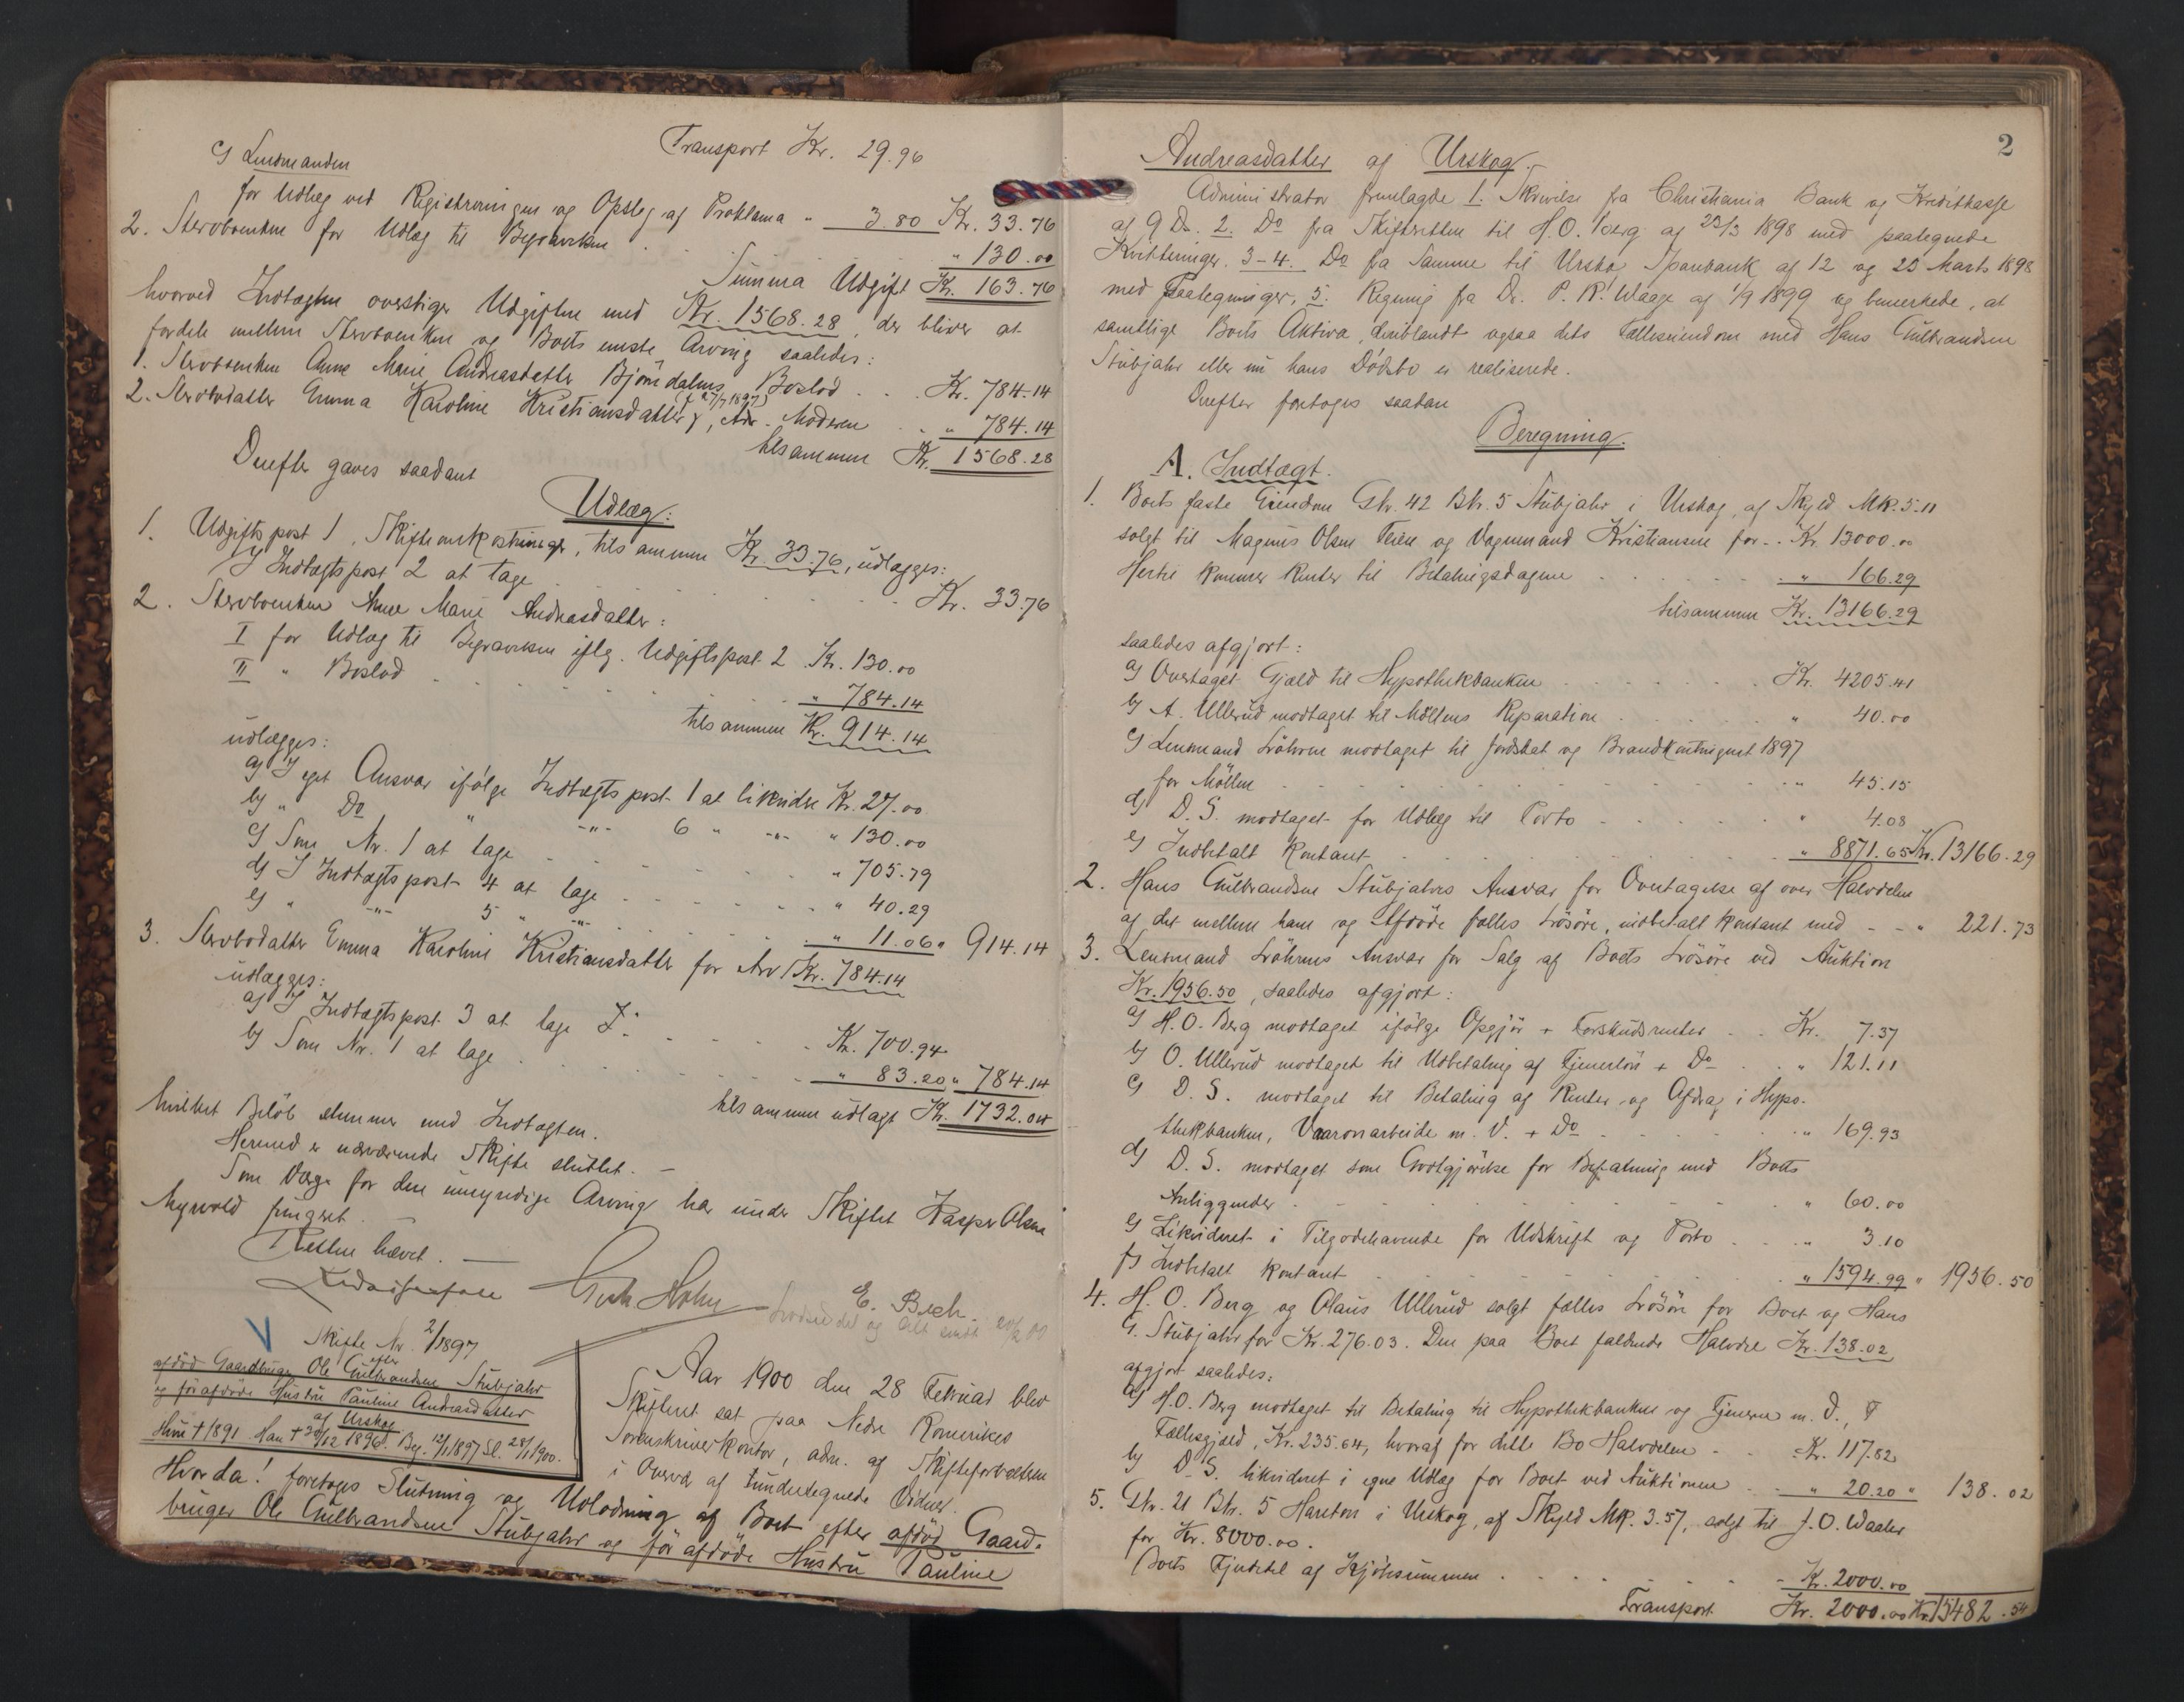 Transport Kr. 29.96
c) Lensmanden
for Udlæg ved Registreringen og Opslag af Proklama " 3.80 Kr. 33.76
2. Sterboenken for Udlæg til Begravelsen . . . " 130.00
Summa Udgift Kr. 163.76
hvorved Indtægten overstiger Udgiften med Kr. 1568.28, der bliver at
fordele mellem Sterboenken og Boets eneste Arving saaledes:
1. Sterboenken Anne Marie Andreasdatter Bjørndalens Boslod . . . Kr. 784.14
2. Sterbodatter Emma Karoline Kristiansdatter (f. 27/7 1897), Adr. Moderen . . " 784.14
tilsammen Kr. 1568.28
Derefter gaves saadant
Udlæg:
1. Udgiftspost 1, Skifteomkostninger, tilsammen Kr. 33.76, udlægges:
I Indtægtspost 2 at tage . . . Kr. 33.76
2. Sterboenken Anne Marie Andreasdatter:
I for Udlæg til Begravelsen iflg. Udgiftspost 2 Kr. 130.00
II " Boslod . . . " 784.14
tilsammen Kr. 914.14
udlægges:
a) I eget Ansvar ifølge Indtægtspost 1 at likvidere Kr. 27.00
b) " Do " -"- 6 " -"- " 130.00
c) Som Nr. 1 at tage . . . " 705.79
d) I Indtægtspost 4 at tage . . . " 40.29
e) " -"- 5 " -"- . . . " 11.06 " 914.14
3. Sterbodatter Emma Karoline Kristiansdatter for Arv Kr. 784.14
udlægges:
a) I Indtægtspost 3 at tage . . . Kr. 700.94
b) Som Nr. 1 at tage . . . " 83.20 " 784.14
tilsammen udlagt Kr. 1732.04
hvilket Beløb stemmer med Indtægten.
Hermed er nærværende Skifte sluttet. —
Som Værge for den umyndige Arving har under Skiftet Kasper Olsen
Myrvold fungeret. —
Retten hævet. —
E. Bech.
Skifte Nr. 2/1897
efter
afdød Gaardbruger Ole Gulbrandsen Stubjahr
og førafdøde Hustru Pauline Andreasdatter
af Urskog
Hun † 1891. Han † 20/12 1896. Beg. 12/1 1897 Sl. 28/1 1900.
Aar 1900 den 28 Februar blev
Skifteret sat paa Nedre Romerikes
Sorenskriverkontor, adm. af Skifteforvalteren
i Overvær af undertegnede Vidner.
Hvorda! foretoges Slutning og Udlodning af Boet efter afdød Gaard-
bruger Ole Gulbrandsen Stubjahr og førafdøde Hustru Pauline
2
Andreasdatter af Urskog.
Administrator fremlagde 1. Skrivelse fra Christiania Bank og Kreditkasse
af 9 Ds. 2. Do fra Skifteretten til H. O. Berg af 23/3 1898 med paategnede
Kvitteringer. 3-4. Do fra Samme til Urskog Sparebank af 12 og 23 Marts 1898
med Paategninger, 5. Regning fra Dr. P. R. Waage af 1/9 1899 og bemerkede, at
samtlige Boets Aktiva, deriblandt ogsaa dets Fælleseiendom med Hans Gulbrandsen
Stubjahr eller nu hans Dødsbo er realiserede.
Derefter foretoges saadan
Beregning.
A. Indtægt.
1. Boets faste Eiendom Gnr. 42 Bnr. 5 Stubjahr i Urskog, af Skyld Mk. 5.11
solgt til Magnus Olsen Teien og Vagnmand Kristiansen for . . Kr. 13000.00
Hertil kommer Renter til Betalingsdagene . . . " 166.29
tilsammen Kr. 13166.29
saaledes afgjort:
a) Overtaget Gjæld til Hypothekbanken . . . Kr. 4205.41
b) A. Ullerud modtaget til Møllens Reparation . . . " 40.00
c) Lensmand Løhren modtaget til Jordskat og Brandkontingent 1897
for Møllen . . . " 45.15
d) D. S. modtaget for Udlæg til Porto . . . " 4.08
e) Indbetalt kontant . . . " 8871.65 Kr. 13166.29
2. Hans Gulbrandsen Stubjahrs Ansvar for Overtagelse af over Halvdelen
af det mellem ham og Afdøde fælles Løsøre, indbetalt kontant med - - " 221.73
3. Lensmand Løhrens Ansvar for Salg af Boets Løsøre ved Auktion
Kr. 1956.50, saaledes afgjort:
a) H. O. Berg modtaget ifølge Opgjør + Forskudsrenter . . Kr. 7.37
b) O. Ullerud modtaget til Udbetaling af Tjenerløn + Do . . " 121.11
c) D. S. modtaget til Betaling af Renter og Afdrag i Hypo-
thekbanken, Vaaronnarbeide m. V. + Do . . . " 169.93
d) D. S. modtaget som Godtgjørelse for Befatning med Boets
Anliggender . . . " 60.00
e) Likvideret i Tilgodehavende for Udskrift og Porto . . . " 3.10
f) Indbetalt kontant . . . " 1594.99 " 1956.50
4. H. O. Berg og Olaus Ullerud solgt fælles Løsøre for Boet og Hans
G. Stubjahr for Kr. 276.03. Den paa Boet faldende Halvdel Kr. 138.02
afgjort saaledes:
a) H. O. Berg modtaget til Betaling til Hypothekbanken og Tjenere m. V.,
Fællesgjæld, Kr. 235.64, hvoraf for dette Bo Halvdelen - . Kr. 117.82
b) D. S. likvideret i egne Udlæg for Boet ved Auktionen . . " 20.20 " 138.02
5. Gnr. 21 Bnr. 5 Hareton i Urskog, af Skyld Mk. 3.57, solgt til J. O. Waaler
for Kr. 8000.00.
Boets Fjerdedel af Kjøbesummen . . . Kr. 2000.00
Transport Kr. 2000.00 Kr. 15482.54